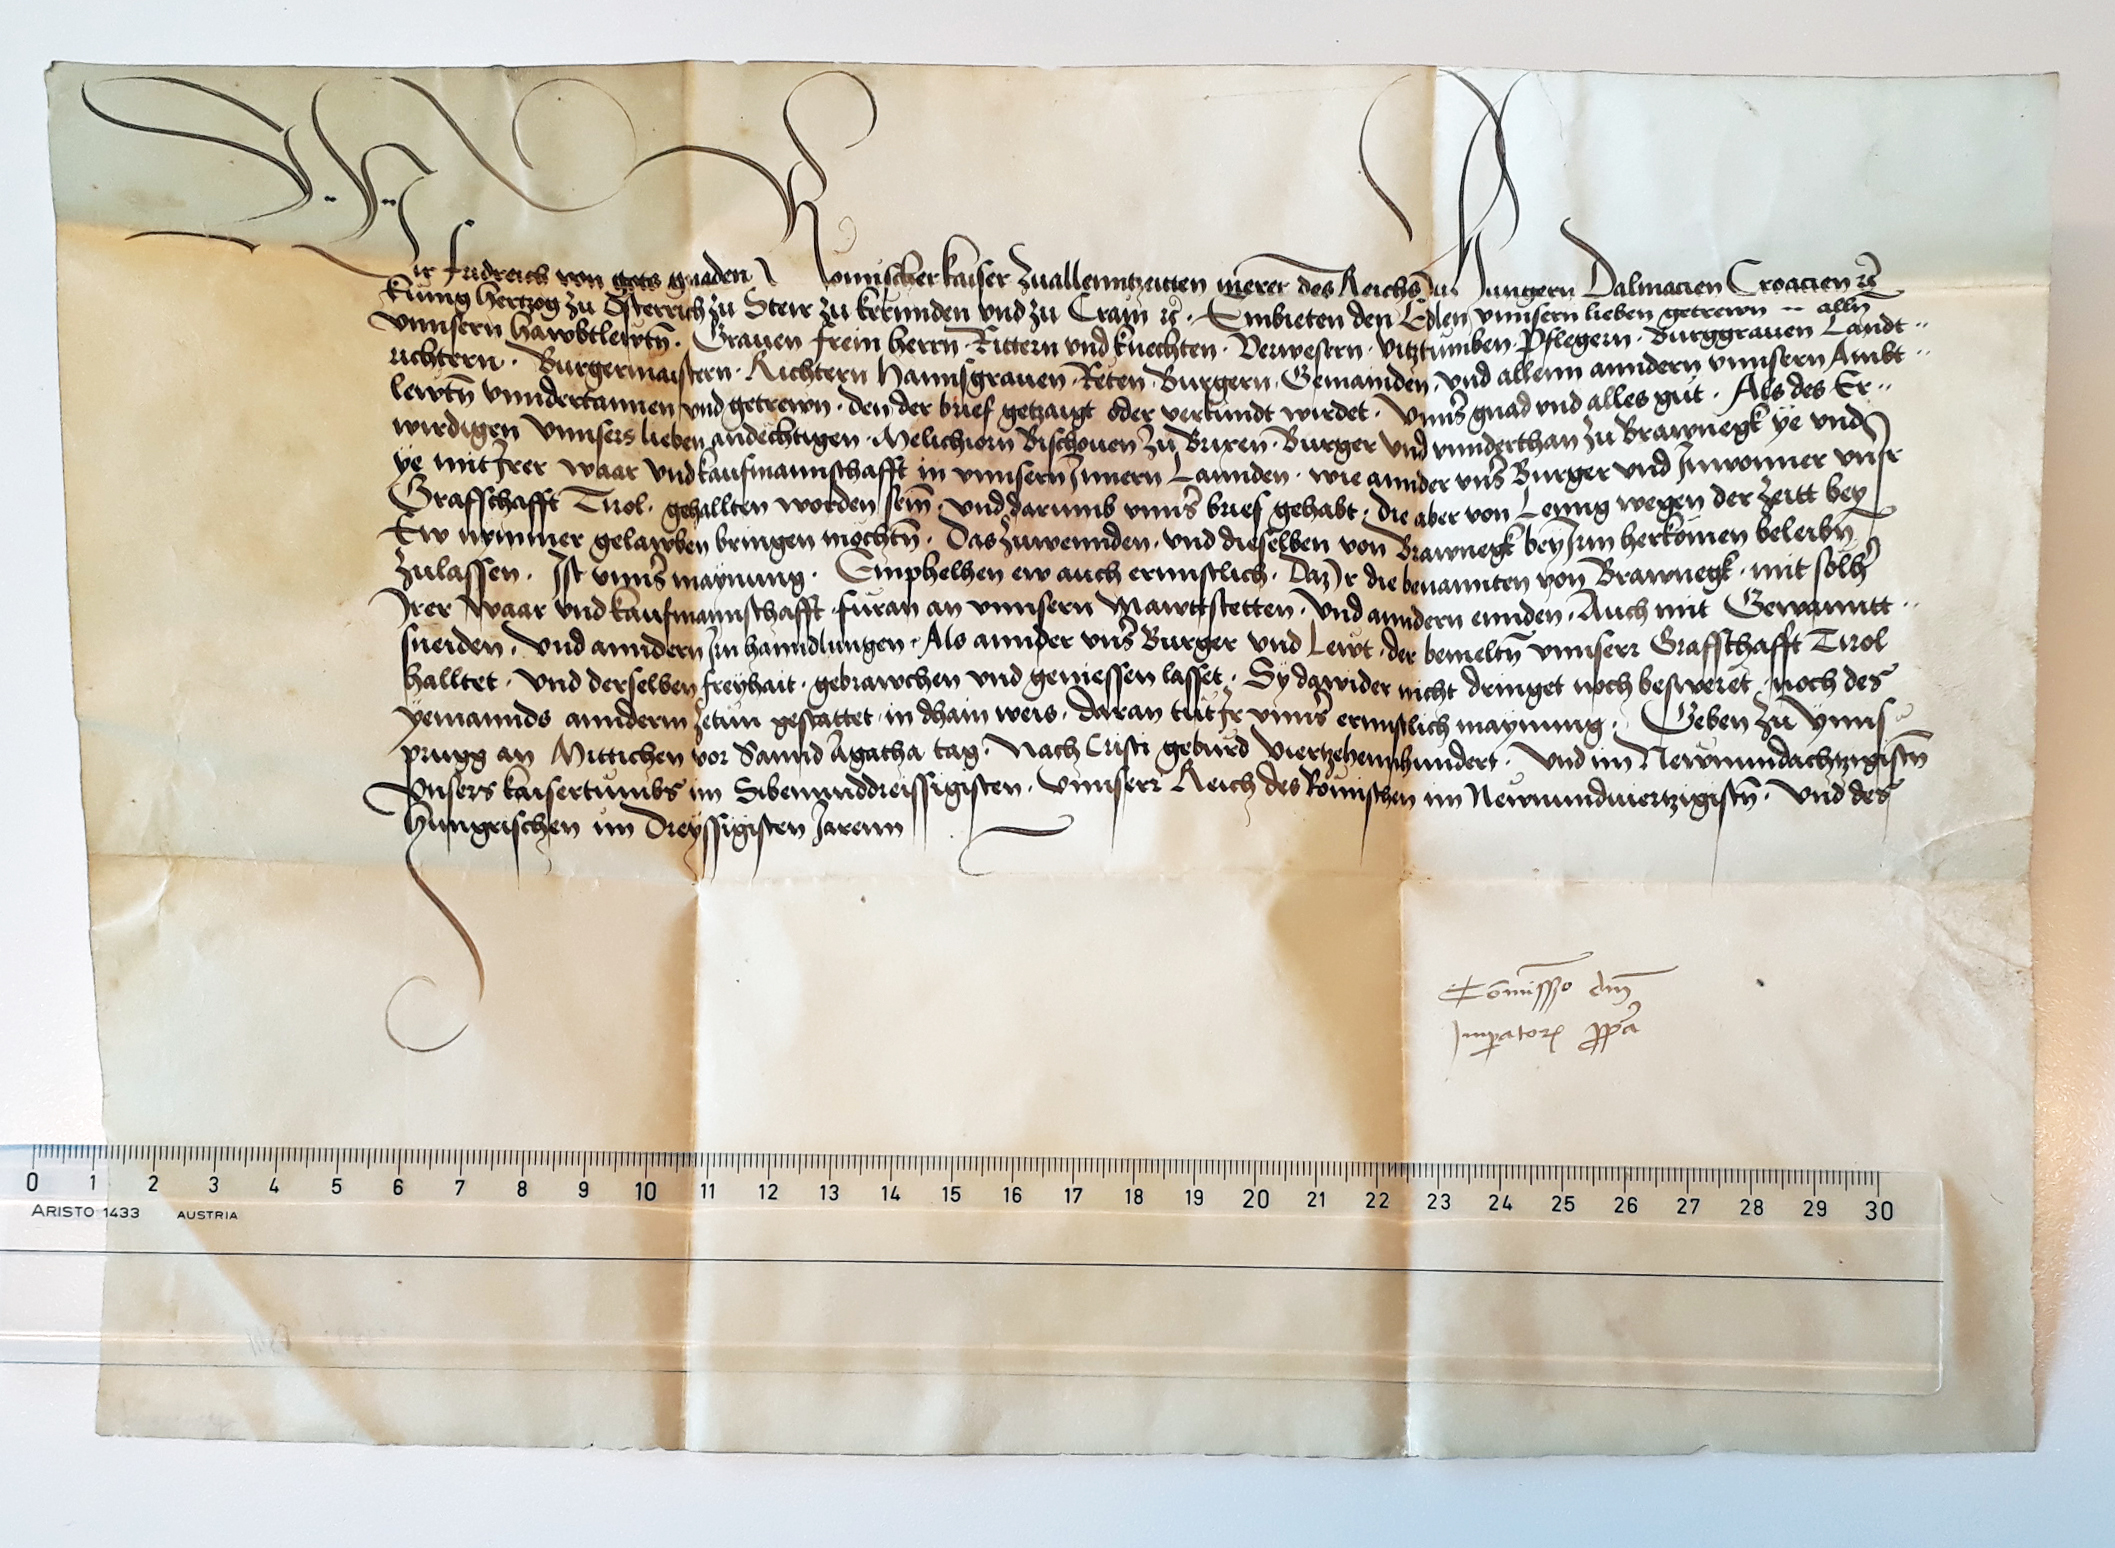 Wir fridreich von gots gnaden Romischer kaiser zuallenntzeitten merer des Reichs zu Hungern Dalmacien Croacien ꝛc̃
kunig hertzog zu Osterreich zu Steir zu kernnden und zu Crain ꝛc̃ · Embieten den Edlen vnnsern lieben getrewn ·· alln̄
vnnsern hawbtlewtn̄ · Grauen frein herrn · Rittern und knechten · Verwesern · vitztumben · Pflegern · Burggrauen Landt ··
richtern · Burgermaistern · Richtern hannsgrauen · Reten · Burgern · Gemainden · und allenn anndern vnnsern Ambt ··
lewtn̄ vnndertannen und getrewn · den der brief getzaigt oder verkundt wirdet · Vnnsr̄ gnad vnd alles gut · Als des Er ··
wirdigen Vnnsers lieben andechtigen · Melichiorn Bischouen zu Brixen · Burger und vnnderthan zu Brawnegk ye und
ye mit Irer waar vnd kaufmannschafft in vnnsern Innern Lannden · wie annder vnsr̄ Burger und Inwonner vnsr
Grafschafft Tirol · gehallten worden sein̄ · und darumb vnnsr̄ brief gehabt · die aber von Leung wegen der zeitt bey
Ew nymmer gelawben bringen mochtn̄ · Das zuwennden · und dieselben von Brawnegk bey Irm herkomen beleibn̄
zulassen · Ist vnnsr̄ maynung · Emphelhen ew auch ernnstlich · Daz Ir die benannten von Brawnegk · mit solhr̄
Irer waar vnd kaufmannschafft · furan an vnnsern Marcktstetten · Vnd anndern ennden · Auch mit Gewanntt ··
sneiden · Vnd anndern Irn hanndlungen · Als annder vnsr̄ Burger und Lewt · der bemeltn̄ vnnserr Grafschafft Tirol
halltet · Vnd derselben freyhait · gebrawchen und geniessen lasset · Sy dawider nicht dringet noch besweret · noch des
yemannds annderm zetun gestattet · in dhain weis · daran tut Ir vnnsr̄ ernnstlich maynung · Geben zu Ynns
prugg an Mittichen vor Sannd Agatha tag · Nach Cristi geburd Viertzehennhundert · Vnd im Newnundachtzigistn̄
Vnsers kaisertumbs im Sibenunddreissigisten · Vnnserr Reich des Romischen im Newnundviertzigistn̄ · Vnd des
Hungrischen im Dreyssigisten Jarenn
Com̄issio dm̄
Imperatoris ppa
0 1 2 3 4 5 6 7 8 9 10 11 12 13 14 15 16 17 18 19 20 21 22 23 24 25 26 27 28 29 30
ARISTO 1433 AUSTRIA